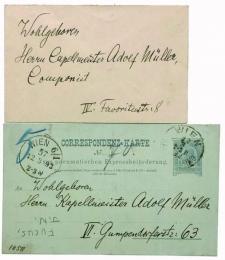 Wohlgeboren
Herrn Capellmeister Adolf Müller,
Componist
IV. Favoritenstr. 8
CORRESPONDENZ-KARTE
zur pneumatischen Expressbeförderung.
WIEN 6/1
WIEN
An Wohlgeboren
Herrn Kapellmeister Adolf Müller
VI. Gumpendorferstr. 63
FUCHS,